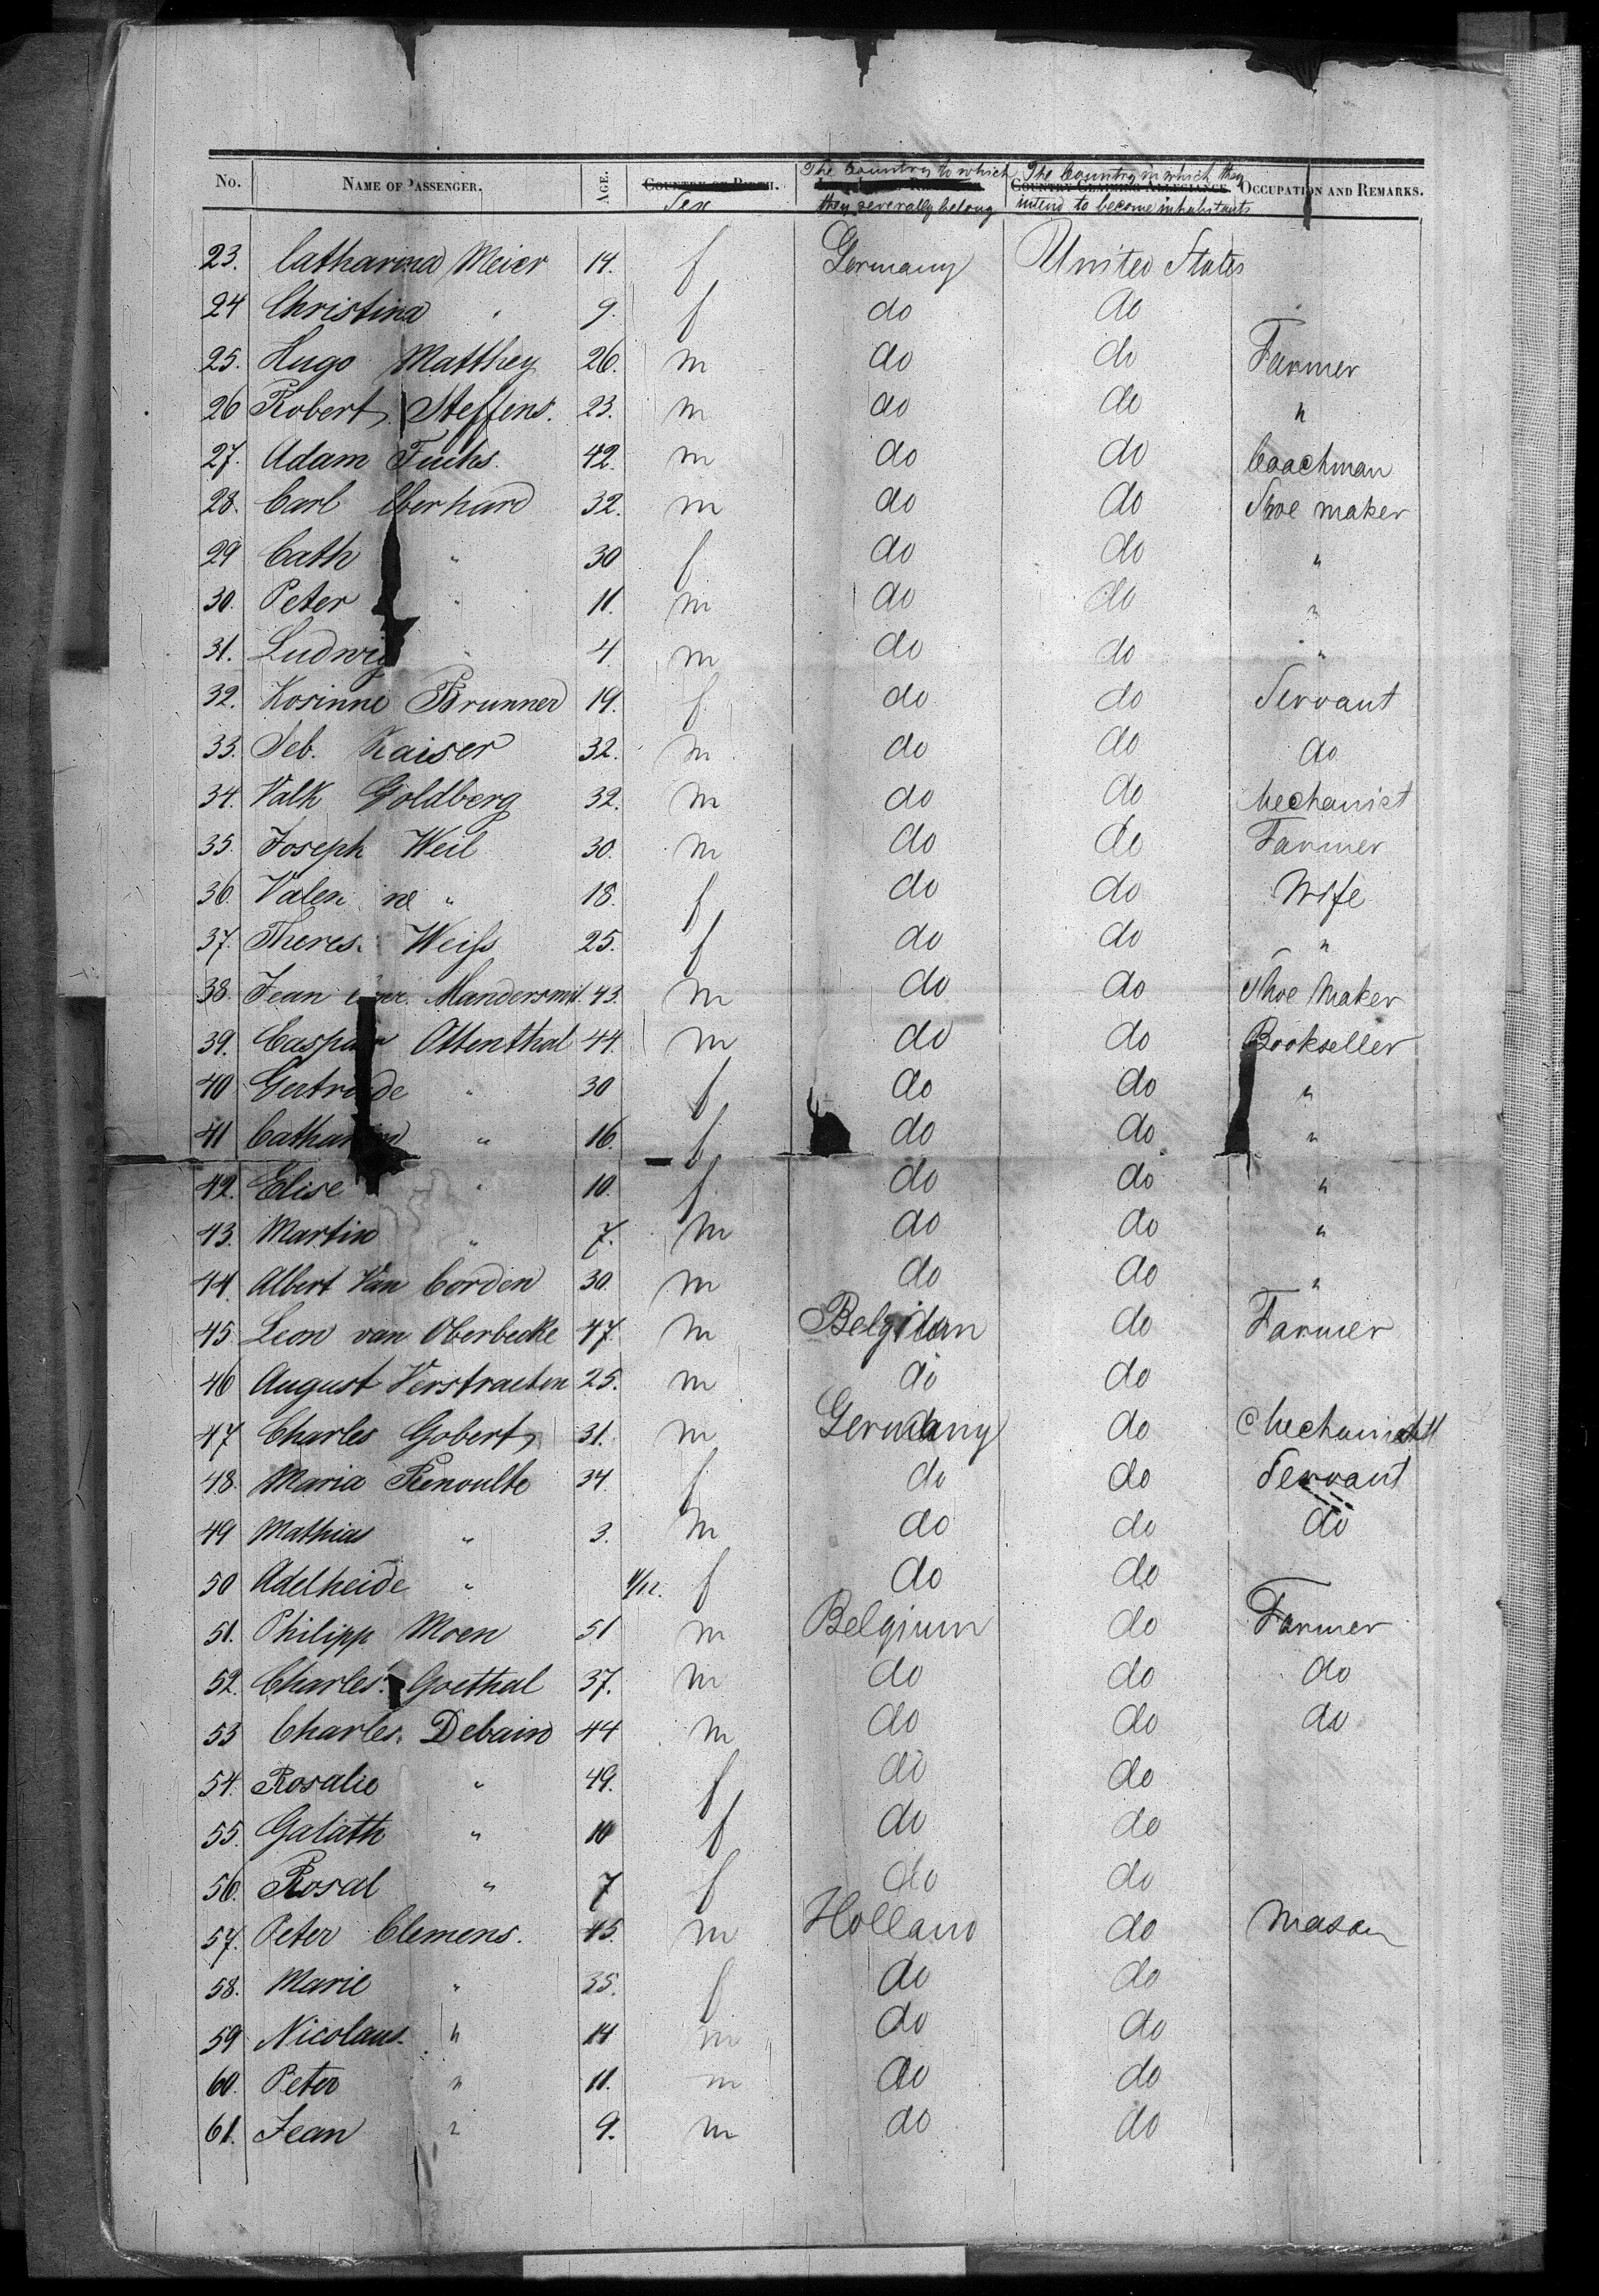 The Country to which The Country in which they
No. NAME OF PASSENGER. AGE. COUNTRY OF BIRTH. COUNTRY CLAIMING ALLEGIANCE. OCCUPATION AND REMARKS.
Sex they severally belong intend to become inhabitants
23. Catharina Meier 14. f Germany United States
24 Christina " 9. f do do
25. Hugo Matthey 26. m do do Farmer
26 Robert Steffens. 23. m do do "
27. Adam Fuchs. 42. m do do Coachman
28. Carl Eberhard 32. m do do Shoe maker
29 Cath " 30 f do do "
30. Peter " 11. m do do "
31. Ludwig " 4. m do do "
32. Rosinne Brunner 19. f do do Servant
33. Seb. Kaiser 32. m do do do
34. Valk Goldberg 32. m do do Mechanist
35. Joseph Weil 30. m do do Farmer
36. Valen ne " 18. f do do Wife
37. Theres. Weiss 25. f do do "
38. Jean 43. m do do Shoe Maker
39. Caspar Ottenthal 44. m do do Bookseller
40 Gertrude " 30 f do do "
41 Catharina " 16. f do do "
42. Elise " 10. f do do "
43. Martin " 7. m do do "
44. Albert Van Corden 30. m do do "
45. Leon van Oberbecke 47. m Belgium do Farmer
46 August Verstraeten 25. m do do
47 Charles Gobert 31. m Germany do Mechanist
48. Maria Renoulte 34. f do do Servant
49 Mathias " 3. m do do do
50 Adelheide " f do do
51. Philipp Moen 51 m Belgium do Farmer
52. Charles. Goethal 37. m do do do
53 Charles. Debain 44 m do do do
54. Rosalie " 49. f do do
55. Galath " 10 f do do
56. Rosal " 7 f do do
57. Peter Clemens. 45. m Holland do Mason
58. Marie " 35. f do do
59 Nicolaus. " 14 m do do
60. Peter " 11. m do do
61. Jean " 9. m do do